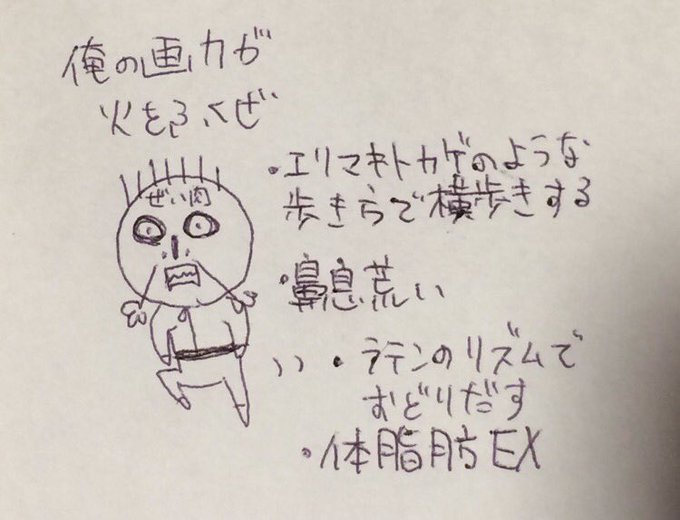 俺の画力が
火をふくぜ
ぜい肉
・エリマキトカゲのような
歩きらで横歩きする
・鼻息荒い
・ラテンのリズムで
おどりだす
・体脂肪EX